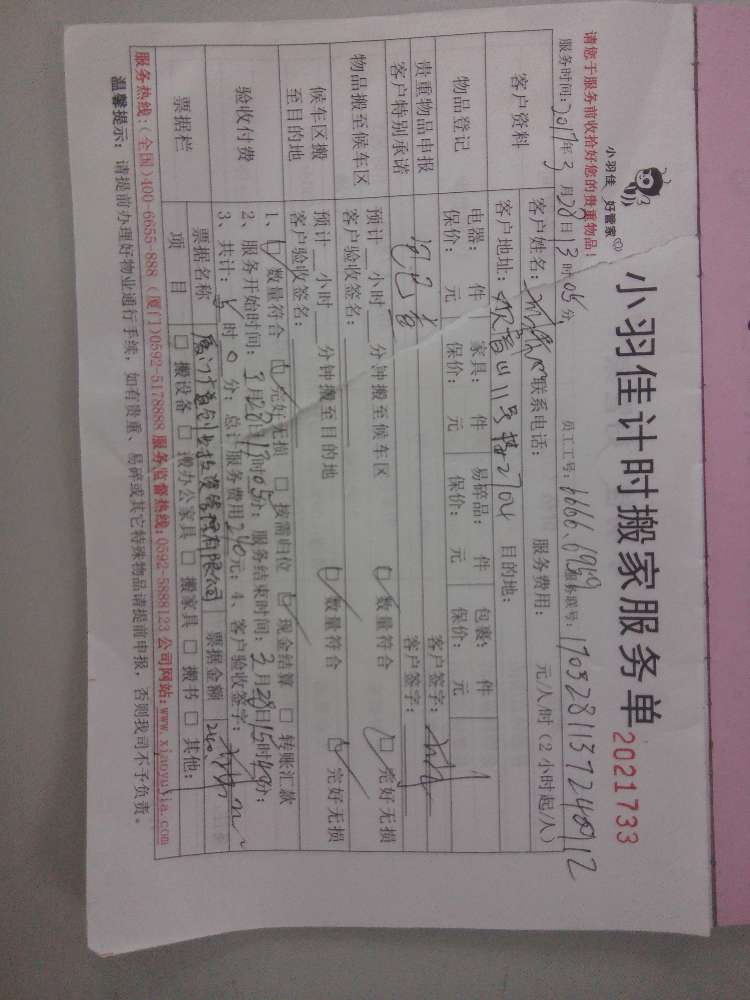 小羽佳 好管家
小羽佳计时搬家服务单 2021733
请您于服务前收拾好您的贵重物品！
服务时间：2017年3月28日13时05分 员工工号：6666.6959 服务联号：
客户资料 客户姓名： 联系电话： 服务费用： 元/人/时（2小时起/人）
客户地址：观音山11号楼2704 目的地：
物品登记 电器： 件 家具： 件 易碎品： 件 包裹： 件
保价： 元 保价： 元 保价： 元 保价： 元
贵重物品申报 客户签字：
客户特别承诺 客户签字：
物品搬至候车区 预计 小时 分钟搬至候车区 数量符合 完好无损
客户验收签名：
候车区搬至目的地 预计 小时 分钟搬至目的地 数量符合 完好无损
客户验收签名：
验收付费 1、 数量符合 完好无损 按需归位 现金结算 转账汇款
2、服务开始时间：3月28日13时05分；服务结束时间：3月28日15时 分；
3、共计： 时0分；总：服务费用240元；4、客户验收签字：
票据栏 票据名称 票据金额 240
项目 搬设备 搬办公家具 搬家具 搬书 其他：
服务热线：（全国）400-6655-888（厦门）0592-5178888 服务监督热线：0592-5888123 公司网站：www.xiaoyujia.com
温馨提示：请提前办理好物业通行手续，如有贵重、易碎或其它特殊物品请提前申报，否则我司不予负责。